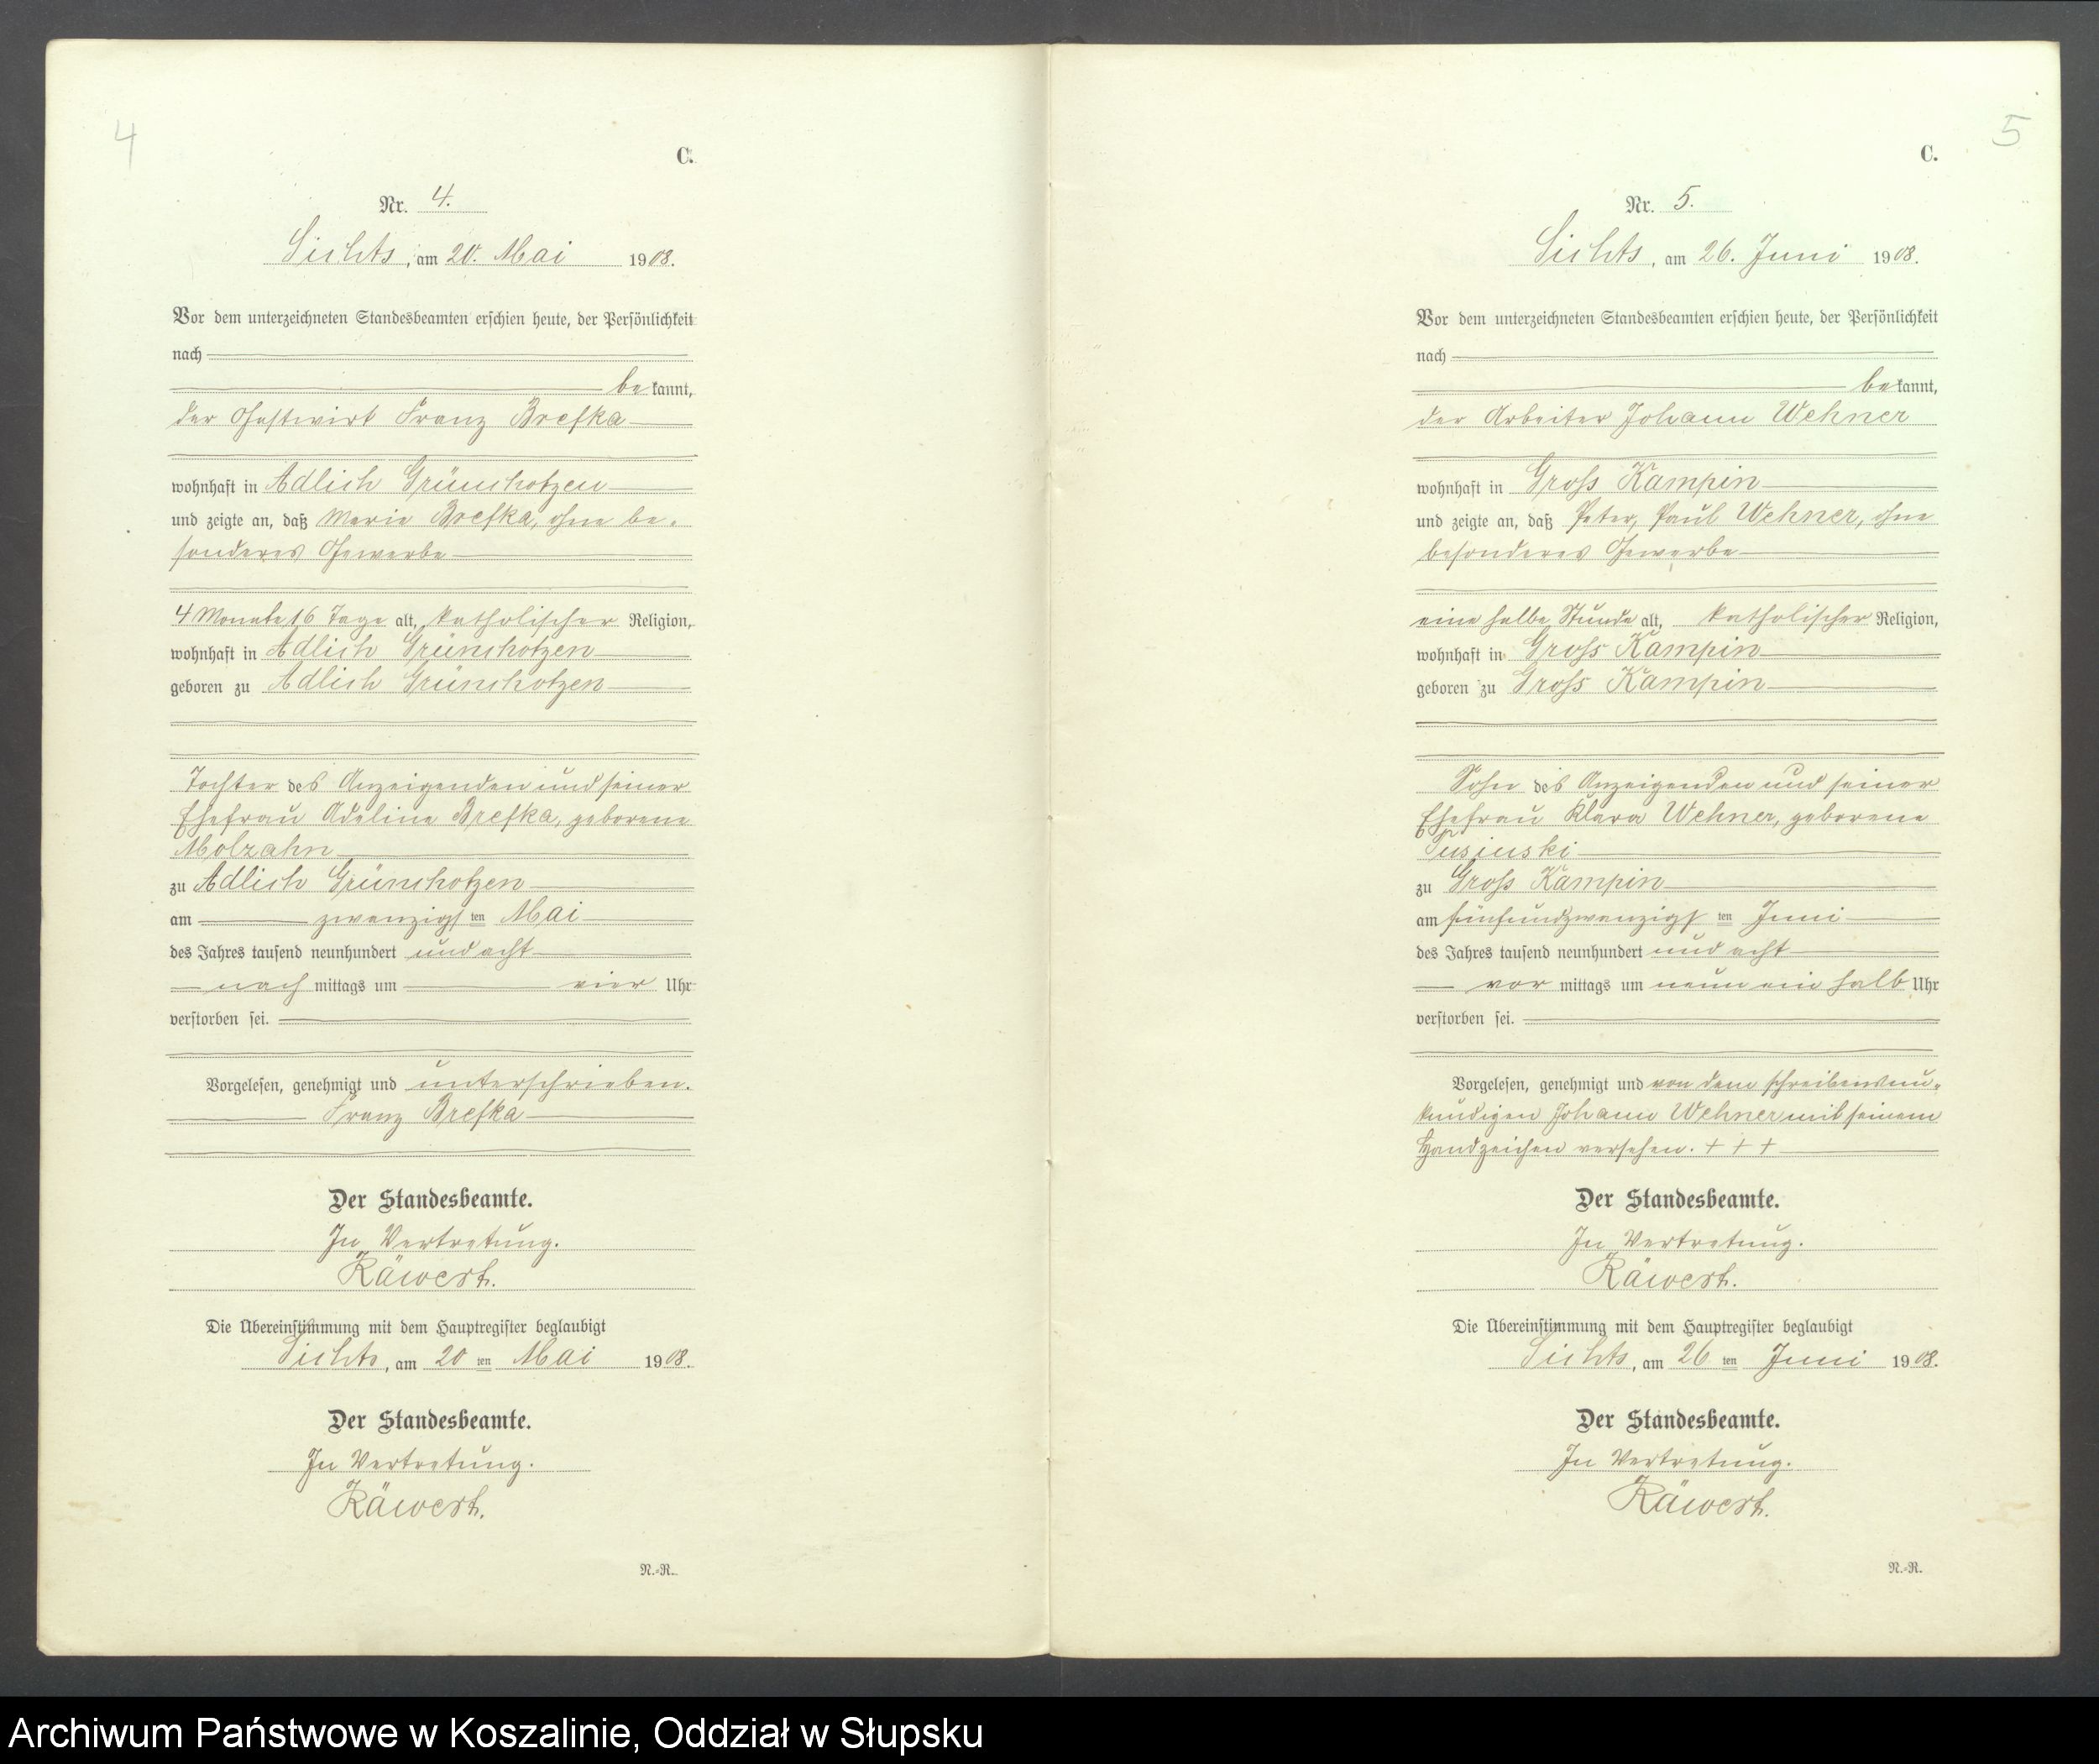 4
C.
Nr. 4.
Sichts, am 20. Mai 1908.
Vor dem unterzeichneten Standesbeamten erschien heute, der Persönlichkeit
nach
bekannt,
der Gastwirt Franz Brefka
wohnhaft in Adlich Grünchotzen
und zeigte an, daß Marie Brefka, ohne be-
sonderes Gewerbe
4 Monate 16 Tage alt, katholischer Religion,
wohnhaft in Adlich Grünchotzen
geboren zu Adlich Grünchotzen
Tochter des Anzeigenden und seiner
Ehefrau Adeline Brefka, geborene
Molzahn
zu Adlich Grünchotzen
am zwanzigsten Mai
des Jahres tausend neunhundert und acht
nachmittags um vier Uhr
verstorben sei.
Vorgelesen, genehmigt und unterschrieben.
Franz Brefka
Der Standesbeamte.
In Vertretung.
Räwert.
Die Übereinstimmung mit dem Hauptregister beglaubigt
Sichts, am 20 ten Mai 1908.
Der Standesbeamte.
In Vertretung.
Räwert.
N.-R.
5
C.
Nr. 5.
Sichts, am 26. Juni 1908.
Vor dem unterzeichneten Standesbeamten erschien heute, der Persönlichkeit
nach
bekannt,
der Arbeiter Johann Wehner
wohnhaft in Gross Kampin
und zeigte an, daß Peter, Paul Wehner, ohne
besonderes Gewerbe
eine halbe Stunde alt, katholischer Religion,
wohnhaft in Gross Kampin
geboren zu Gross Kampin
Sohn des Anzeigenden und seiner
Ehefrau Klara Wehner, geborene
zu Gross Kampin
am fünfundzwanzigsten Juni
des Jahres tausend neunhundert und acht
vormittags um neun ein halb Uhr
verstorben sei.
Vorgelesen, genehmigt und von dem schreibensun-
kundigen Johann Wehner mit seinem
Handzeichen versehen. + + +
Der Standesbeamte.
In Vertretung.
Räwert.
Die Übereinstimmung mit dem Hauptregister beglaubigt
Sichts, am 26 ten Juni 1908.
Der Standesbeamte.
In Vertretung.
Räwert.
N.-R.
Archiwum Państwowe w Koszalinie, Oddział w Słupsku